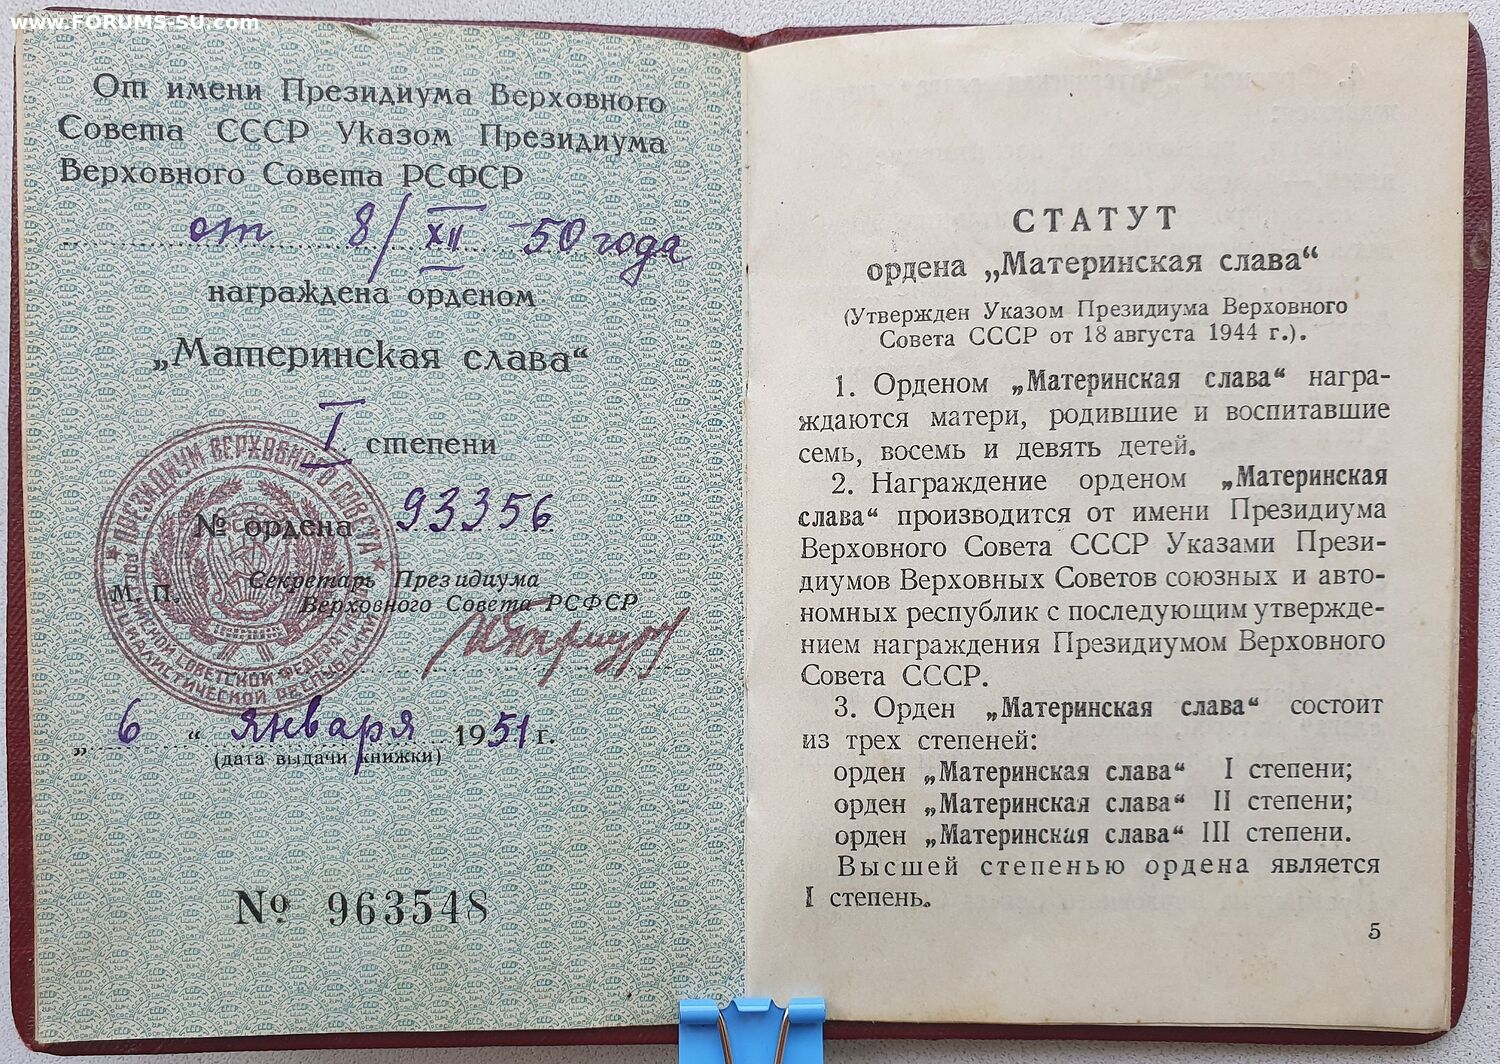 www.FORUMS-SU.com
От имени Президиума Верховного
Совета СССР Указом Президиума
Верховного Совета РСФСР
от 8/XII -50 года
награждена орденом
„Материнская слава“
I степени
№ ордена 93356
М. П.
Секретарь Президиума
Верховного Совета РСФСР
„ 6 “ января 1951 г.
(дата выдачи книжки)
№ 963548
ПРЕЗИДИУМ ВЕРХОВНОГО СОВЕТА
РОССИЙСКОЙ СОВЕТСКОЙ ФЕДЕРАТИВНОЙ
СОЦИАЛИСТИЧЕСКОЙ РЕСПУБЛИКИ
СТАТУТ
ордена „Материнская слава“
(Утвержден Указом Президиума Верховного
Совета СССР от 18 августа 1944 г.).
1. Орденом „Материнская слава“ награ-
ждаются матери, родившие и воспитавшие
семь, восемь и девять детей.
2. Награждение орденом „Материнская
слава“ производится от имени Президиума
Верховного Совета СССР Указами Прези-
диумов Верховных Советов союзных и авто-
номных республик с последующим утвержде-
нием награждения Президиумом Верховного
Совета СССР.
3. Орден „Материнская слава“ состоит
из трех степеней:
орден „Материнская слава“ I степени;
орден „Материнская слава“ II степени;
орден „Материнская слава“ III степени.
Высшей степенью ордена является
I степень.
5